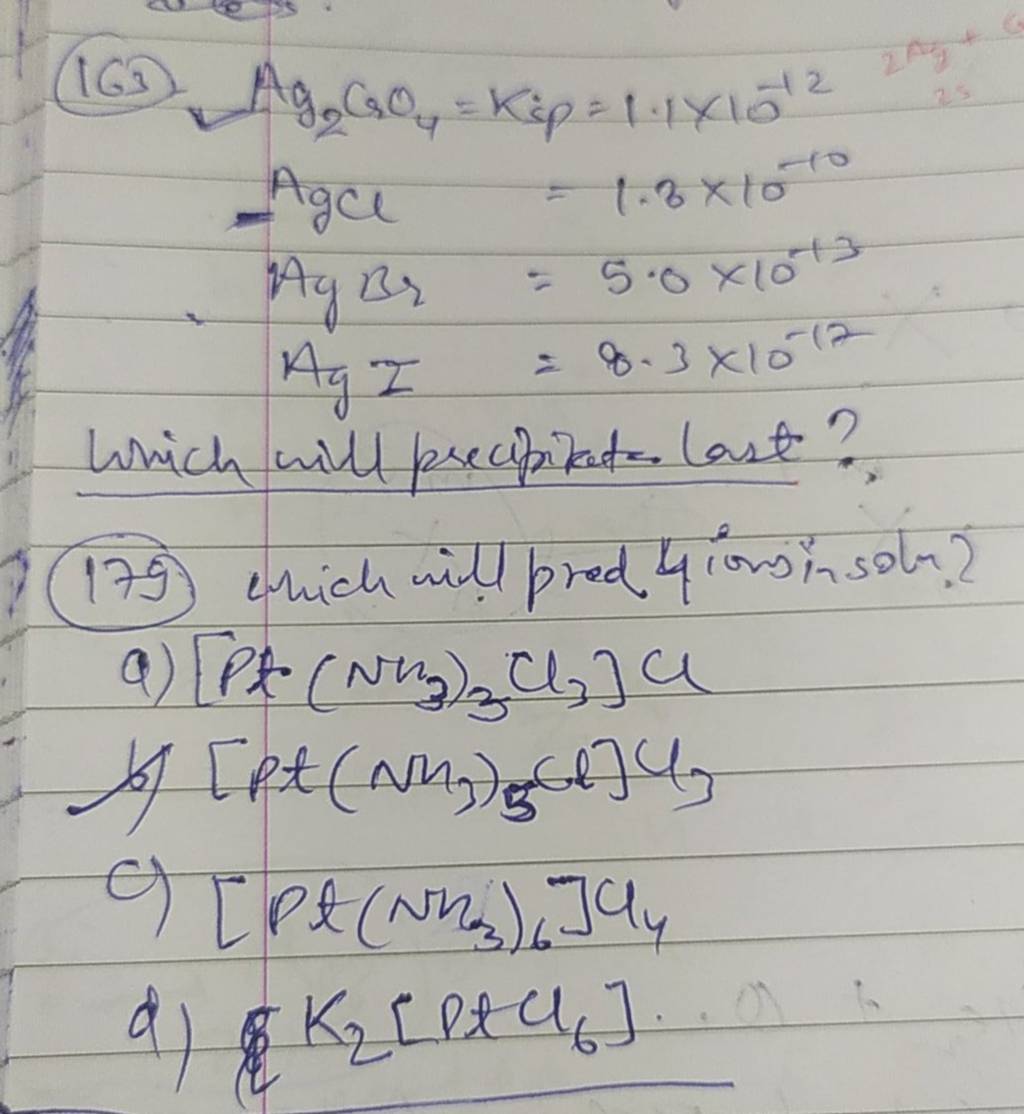 (163) Ag₂CrO₄ = Ksp = 1.1×10⁻¹²
2Ag +
2s
AgCl = 1.8×10⁻¹⁰
AgBr = 5.0×10⁻¹³
AgI = 8.3×10⁻¹⁷
Which will precipitate last?
(179) Which will prod 4 ions in soln?
a) [Pt(NH₃)₃Cl₃]Cl
b) [Pt(NH₃)₅Cl]Cl₃
c) [Pt(NH₃)₆]Cl₄
d) K₂[PtCl₆].